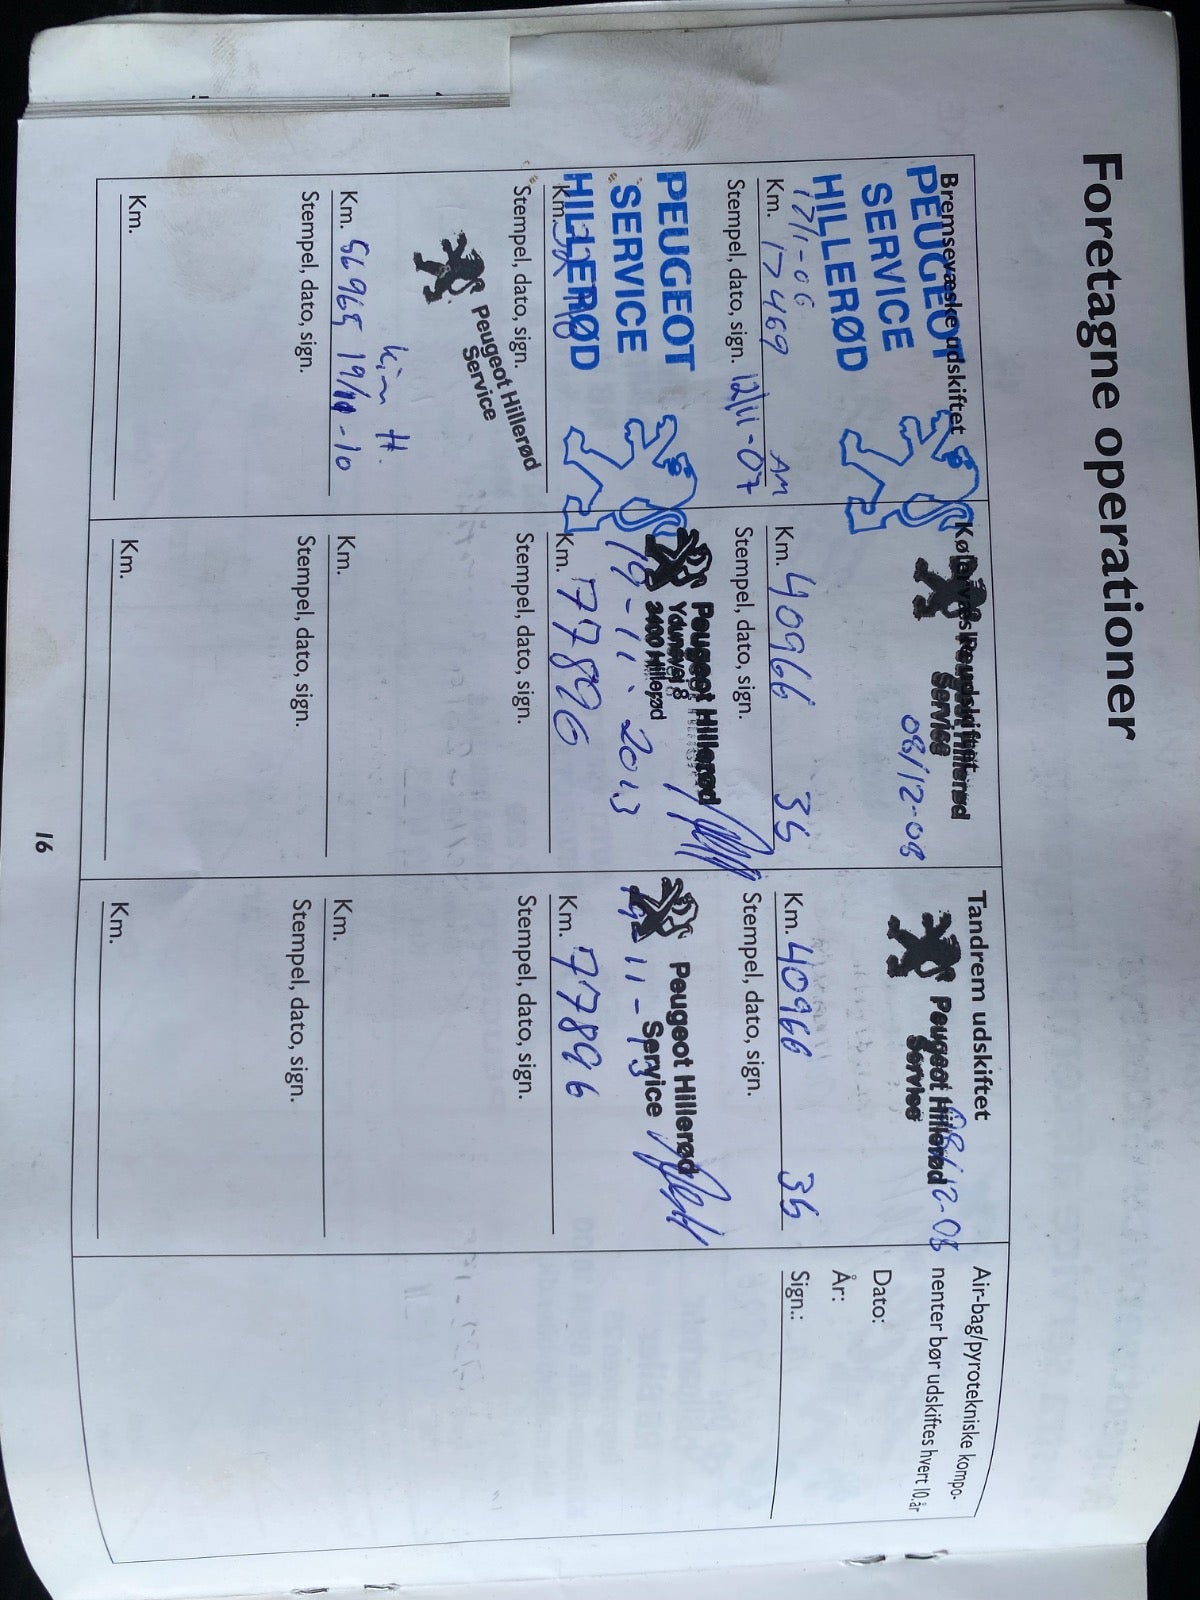 Foretagne operationer
Bremsevæske udskiftet
PEUGEOT
SERVICE
HILLERØD
12/1-06
Km. 17469 AM
Stempel, dato, sign. 12/11-07
PEUGEOT
SERVICE
HILLERØD
Km.
Stempel, dato, sign.
Peugeot Hillerød
Service
Kim H.
Km. 56965 19/ -10
Stempel, dato, sign.
Km.
Kølervæske udskiftet
Peugeot Hillerød
Service
08/12-08
Km. 40966 35
Stempel, dato, sign.
Peugeot Hillerød
8
3400 Hillerød
19-11. 2013
Km. 77896
Stempel, dato, sign.
Km.
Stempel, dato, sign.
Km.
Tandrem udskiftet
Peugeot Hillerød
Service
08/12-08
Km. 40966 35
Stempel, dato, sign.
Peugeot Hillerød
Service
19-11-13
Km. 77896
Stempel, dato, sign.
Km.
Stempel, dato, sign.
Km.
Air-bag/pyrotekniske kompo-
nenter bør udskiftes hvert 10.år
Dato:
År:
Sign.:
16